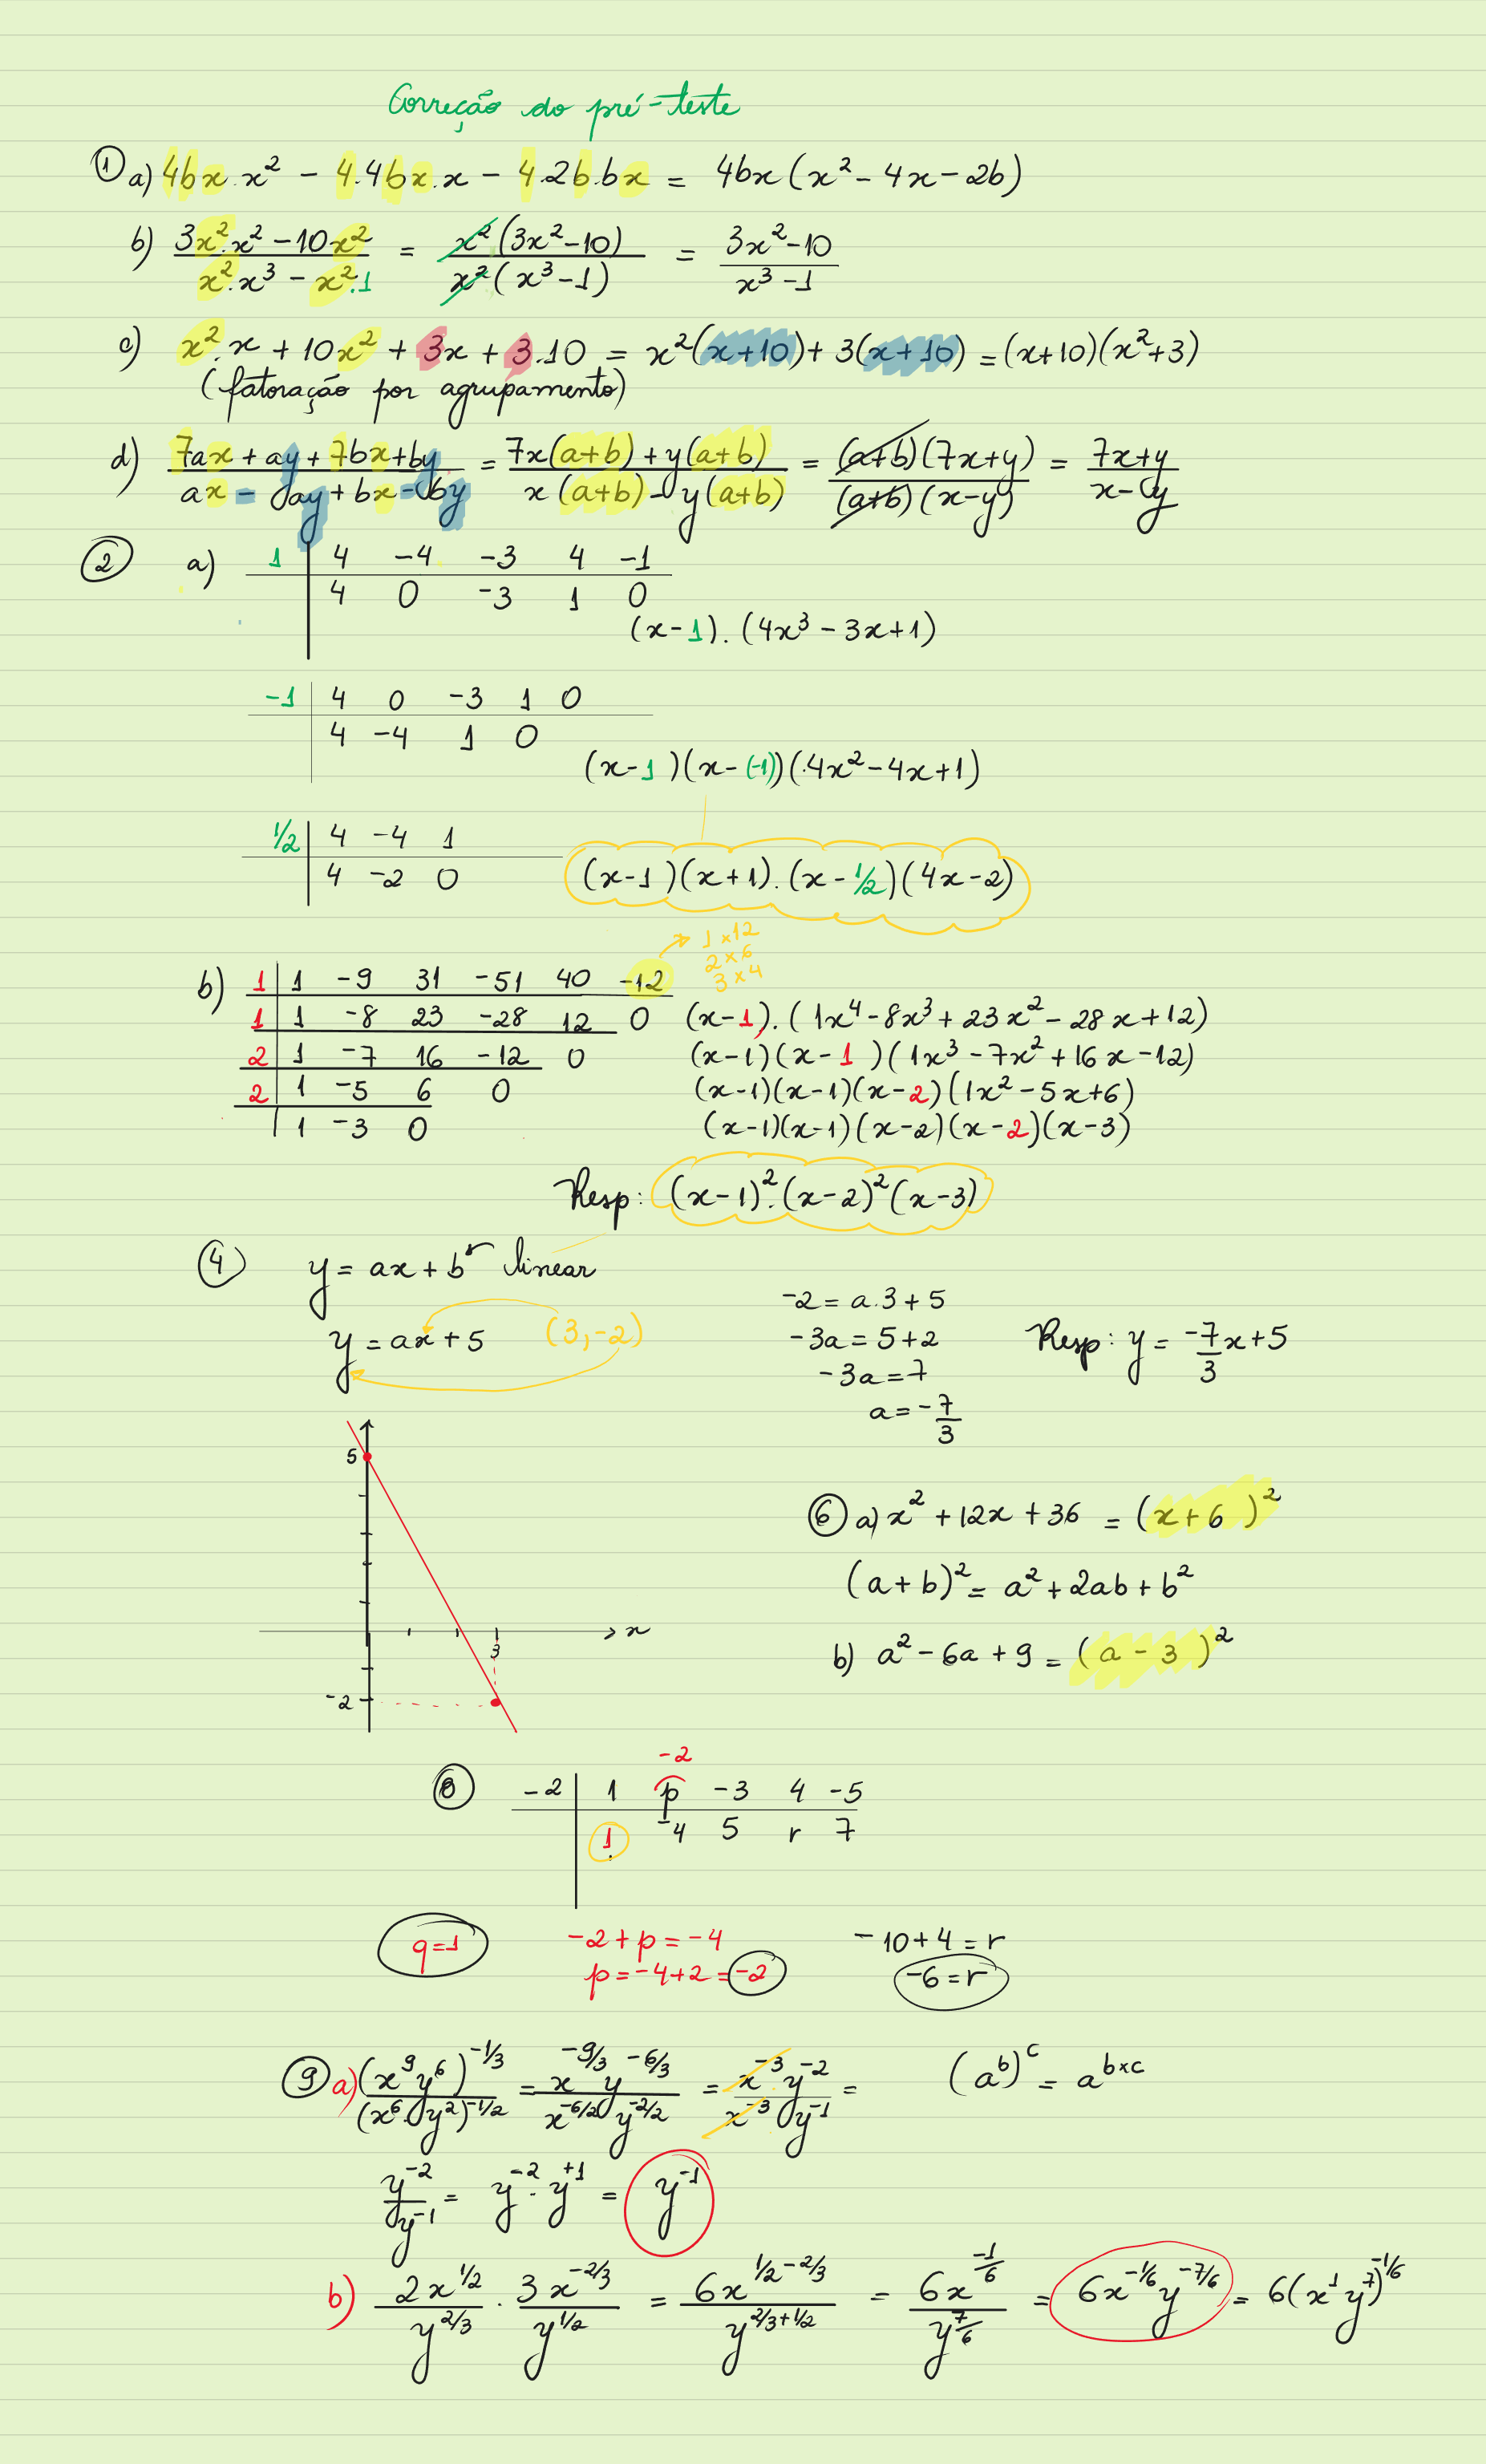 Correção do pré-teste
① a) 4bx.x² - 4.4bx.x - 4.2b.bx = 4bx(x² - 4x - 2b)
b) (3x².x² - 10x²)/(x².x³ - x².1) = x²(3x² - 10)/x²(x³ - 1) = (3x² - 10)/(x³ - 1)
c) x².x + 10x² + 3x + 3.10 = x²(x+10) + 3(x+10) = (x+10)(x²+3)
(fatoração por agrupamento)
d) (7ax + ay + 7bx + by)/(ax - ay + bx - by) = (7x(a+b) + y(a+b))/(x(a+b) - y(a+b)) = (a+b)(7x+y)/(a+b)(x-y) = (7x+y)/(x-y)
② a) 1 | 4 -4 -3 4 -1
4 0 -3 1 0
(x-1).(4x³ - 3x + 1)
-1 | 4 0 -3 1 0
4 -4 1 0
(x-1)(x-(-1))(4x² - 4x + 1)
1/2 | 4 -4 1
4 -2 0 (x-1)(x+1).(x-1/2)(4x-2)
1×12
2×6
3×4
b) 1 | 1 -9 31 -51 40 -12
1 | 1 -8 23 -28 12 0 (x-1).(1x⁴ - 8x³ + 23x² - 28x + 12)
2 | 1 -7 16 -12 0 (x-1)(x-1)(1x³ - 7x² + 16x - 12)
2 | 1 -5 6 0 (x-1)(x-1)(x-2)(1x² - 5x + 6)
| 1 -3 0 (x-1)(x-1)(x-2)(x-2)(x-3)
Resp: (x-1)².(x-2)²(x-3)
④ y = ax + b linear
y = ax + 5 (3,-2)
-2 = a.3 + 5
-3a = 5 + 2
-3a = 7
a = -7/3
Resp: y = -7/3 x + 5
5
x
3
-2
⑥ a) x² + 12x + 36 = (x + 6)²
(a+b)² = a² + 2ab + b²
b) a² - 6a + 9 = (a - 3)²
-2
⑧ -2 | 1 p -3 4 -5
1 -4 5 r 7
q=1
-2 + p = -4
p = -4 + 2 = -2
-10 + 4 = r
-6 = r
⑨ a) (x⁹y⁶)^(-1/3)/(x⁶.y²)^(-1/2) = x^(-9/3) y^(-6/3)/x^(-6/2) y^(-2/2) = x⁻³.y⁻²/x⁻³ y⁻¹ = (a^b)^c = a^(b×c)
y⁻²/y⁻¹ = y⁻².y⁺¹ = y⁻¹
b) 2x^(1/2)/y^(2/3) . 3x^(-2/3)/y^(1/2) = 6x^(1/2-2/3)/y^(2/3+1/2) = 6x^(-1/6)/y^(7/6) = 6x^(-1/6) y^(-7/6) = 6(x¹y⁷)^(-1/6)